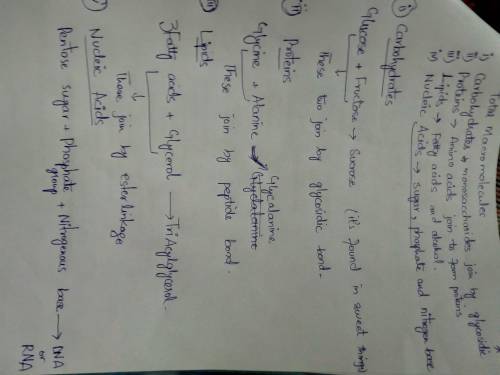 Total Macromolecules
i) Carbohydrates → monosaccharides join by glycosidic
ii) Proteins → Amino acids join to form protiens
iii) Lipids → Fatty acids and alcohol.
iv) Nucleic Acids → sugar, phosphate and nitrogen base
i) Carbohydrates
Glucose + Fructose → Sucrose (it's found in sweet things)
These two join by glycosidic bond.
ii) Proteins
Glycine + Alanine → Glycalanine
These join by peptide bond.
iii) Lipids
3 Fatty acids + Glycerol → TriAcylglycerol.
These join by ester linkage
Nucleic Acids
Pentose sugar + Phosphate group + Nitrogenous base → DNA or RNA